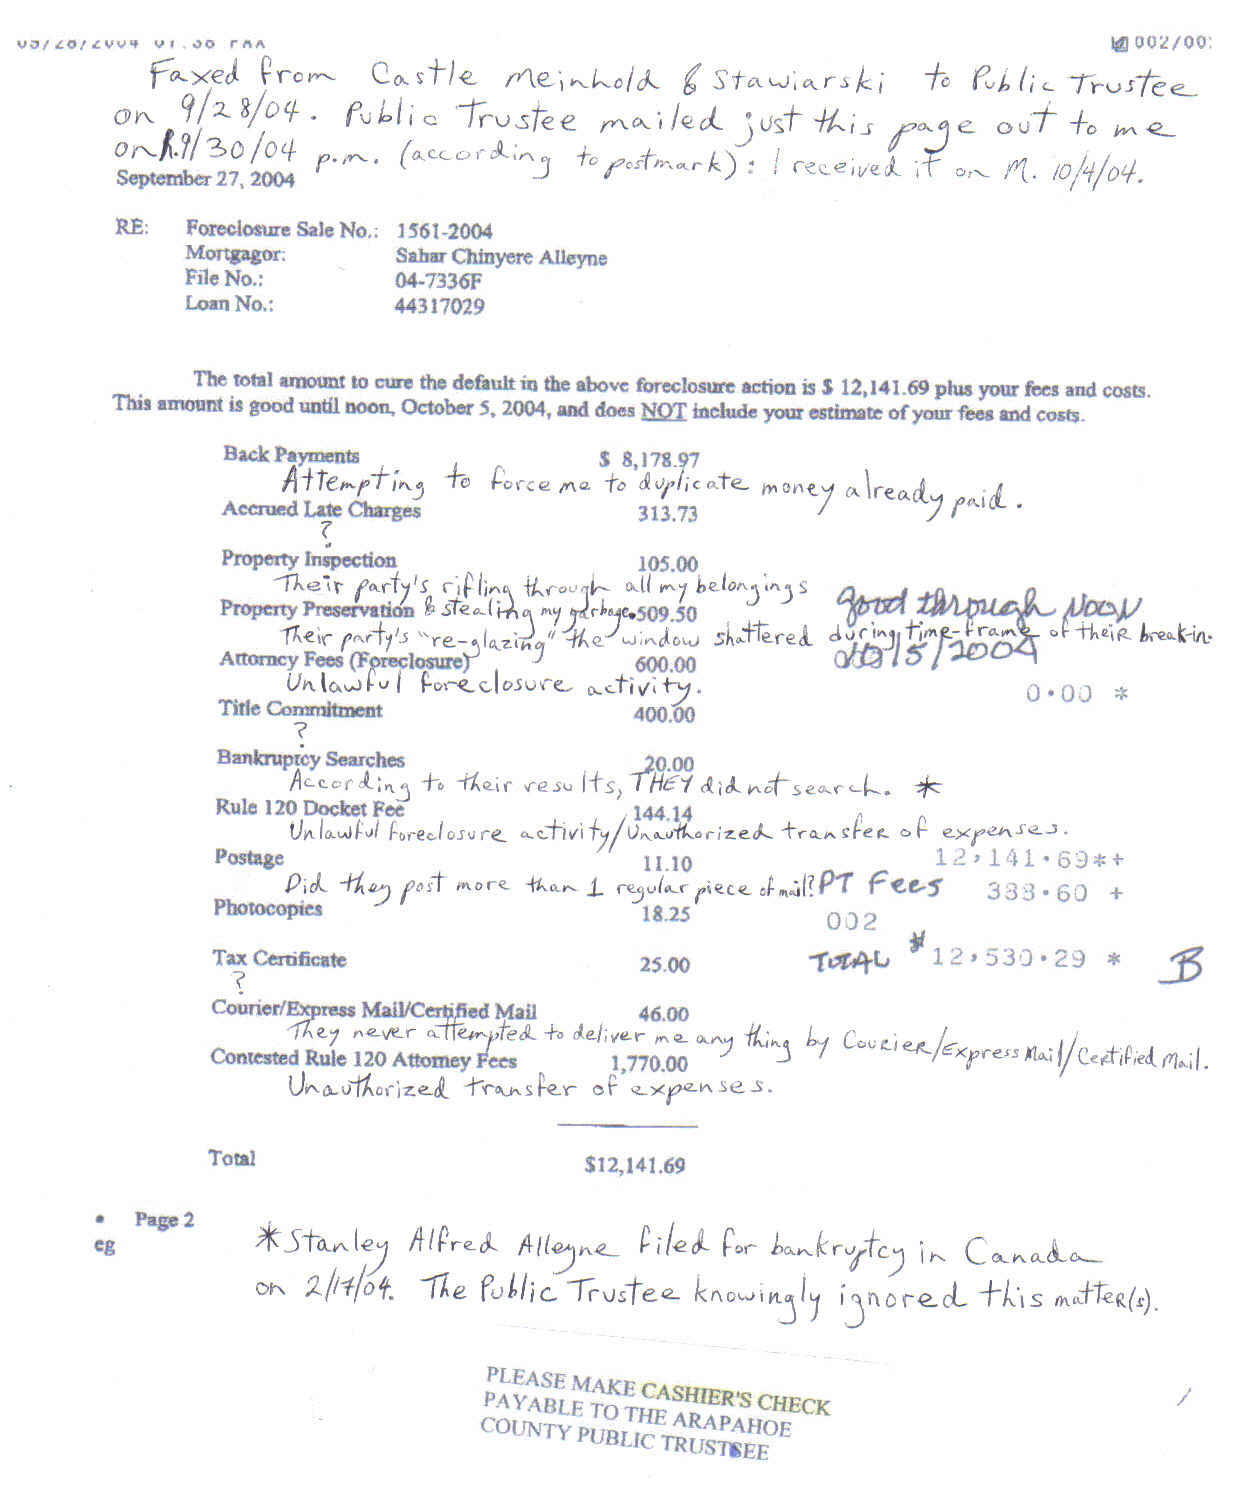 002/00
Faxed from Castle Meinhold & Stawiarski to Public Trustee
on 9/28/04. Public Trustee mailed just this page out to me
on R.9/30/04 p.m. (according to postmark): I received it on M. 10/4/04.
September 27, 2004
RE: Foreclosure Sale No.: 1561-2004
Mortgagor: Sahar Chinyere Alleyne
File No.: 04-7336F
Loan No.: 44317029
The total amount to cure the default in the above foreclosure action is $ 12,141.69 plus your fees and costs.
This amount is good until noon, October 5, 2004, and does NOT include your estimate of your fees and costs.
Back Payments $ 8,178.97
Attempting to force me to duplicate money already paid.
Accrued Late Charges 313.73
?
Property Inspection 105.00
Their party's rifling through all my belongings
Property Preservation & stealing my garbage. 509.50 good through Noon
Their party's "re-glazing" the window shattered during time-frame of their break-in.
Attorney Fees (Foreclosure) 600.00 10/5/2004
Unlawful foreclosure activity. 0.00 *
Title Commitment 400.00
?
Bankruptcy Searches 20.00
According to their results, THEY did not search. *
Rule 120 Docket Fee 144.14
Unlawful foreclosure activity/Unauthorized transfer of expenses.
Postage 11.10 12,141.69*+
Did they post more than 1 regular piece of mail? PT Fees 388.60 +
Photocopies 18.25 002
Tax Certificate 25.00 TOTAL $ 12,530.29 * B
?
Courier/Express Mail/Certified Mail 46.00
They never attempted to deliver me any thing by Courier/Express Mail/Certified Mail.
Contested Rule 120 Attorney Fees 1,770.00
Unauthorized transfer of expenses.
Total $12,141.69
• Page 2
eg
*Stanley Alfred Alleyne filed for bankruptcy in Canada
on 2/17/04. The Public Trustee knowingly ignored this matter(s).
PLEASE MAKE CASHIER'S CHECK
PAYABLE TO THE ARAPAHOE
COUNTY PUBLIC TRUSTEE